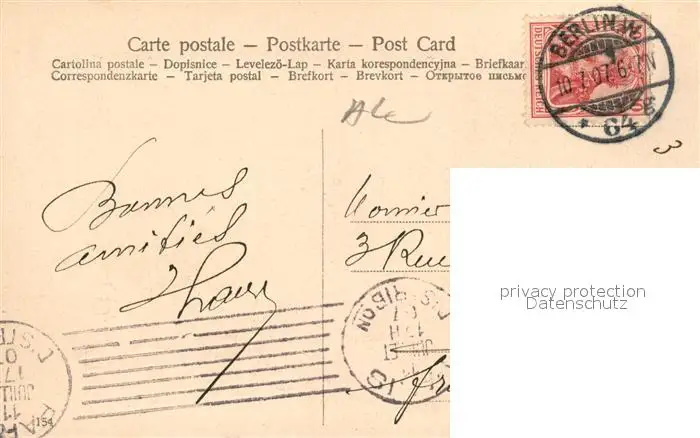 Carte postale – Postkarte – Post Card
Cartolina postale – Dopisnice – Levelező-Lap – Karta korespondencyjna – Briefkaar
Correspondenzkarte – Tarjeta postal – Brefkort – Brevkort – Открытое письмо
DEUTSCHES REICH
10
BERLIN.W.
10.7.07.6-7N
* 64 g
3
Bonnes
amitiés
3 Rue
privacy protection
Datenschutz
DISTRIBON
PARIS
154